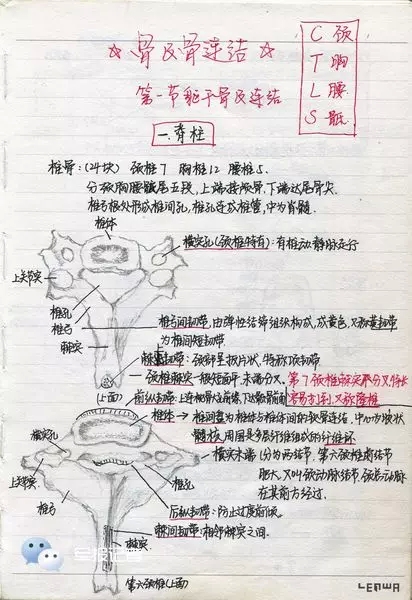 ☆骨及骨连结☆
C 颈
T 胸
L 腰
S 骶
第一节躯干骨及连结
一.脊柱
椎骨:(24块) 颈椎7 胸椎12 腰椎5.
分颈胸腰骶尾五段,上端接颅骨,下端达尾骨尖.
椎弓根处形成椎间孔,椎孔连成椎管,中为脊髓.
椎体
横突孔(颈椎特有):有椎动.静脉走行
上关节突
椎孔
椎弓
棘突
(上面)
椎弓间韧带,由弹性结缔组织构成,成黄色,又称黄韧带
为椎间短韧带
颈部呈板片状,特称项韧带
颈椎棘突一般短面平,末端分叉,第7颈椎棘突不分叉,特长
易扪到,又称隆椎
前纵韧带:
椎体→椎间盘为椎体与椎体间的软骨连结,中心为胶状
髓核,周围是多层纤维组成的纤维环
横突孔
横突末端分为两结节,第六颈椎前结节
肥大,又叫颈动脉结节,颈总动脉
在其前方经过.
上关节突
椎孔
椎弓
后纵韧带:防止过度前屈.
棘间韧带:相邻棘突之间.
棘突
第六颈椎(上面)
LENWA